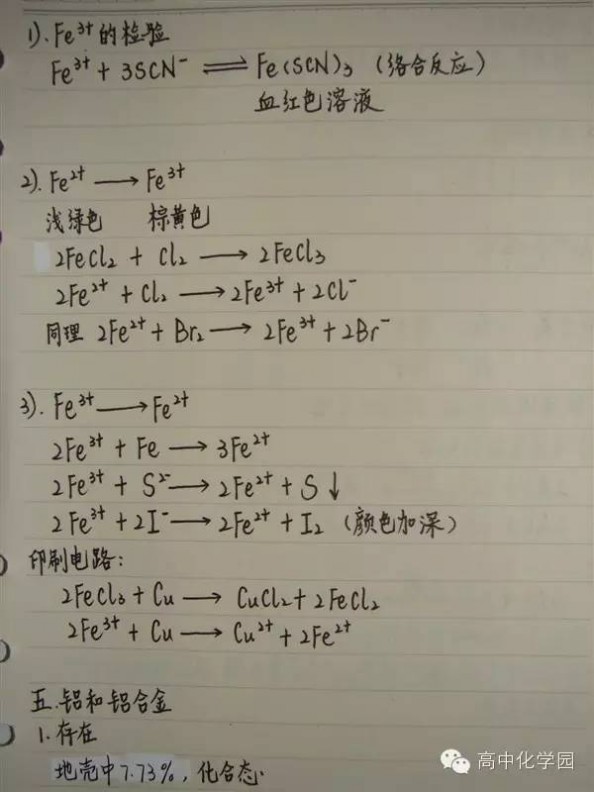 1). Fe³⁺的检验
Fe³⁺ + 3SCN⁻ ⇌ Fe(SCN)₃ (络合反应)
血红色溶液
2). Fe²⁺ ⟶ Fe³⁺
浅绿色 棕黄色
2FeCl₂ + Cl₂ ⟶ 2FeCl₃
2Fe²⁺ + Cl₂ ⟶ 2Fe³⁺ + 2Cl⁻
同理 2Fe²⁺ + Br₂ ⟶ 2Fe³⁺ + 2Br⁻
3). Fe³⁺ ⟶ Fe²⁺
2Fe³⁺ + Fe ⟶ 3Fe²⁺
2Fe³⁺ + S²⁻ ⟶ 2Fe²⁺ + S↓
2Fe³⁺ + 2I⁻ ⟶ 2Fe²⁺ + I₂ (颜色加深)
印刷电路:
2FeCl₃ + Cu ⟶ CuCl₂ + 2FeCl₂
2Fe³⁺ + Cu ⟶ Cu²⁺ + 2Fe²⁺
五.铝和铝合金
1.存在
地壳中7.73%, 化合态.
高中化学园